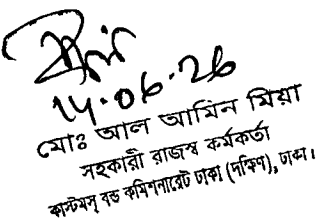 14.06.26
মোঃ আল আমিন মিয়া
সহকারী রাজস্ব কর্মকর্তা
কাস্টমস্ বন্ড কমিশনারেট ঢাকা (দক্ষিণ), ঢাকা।